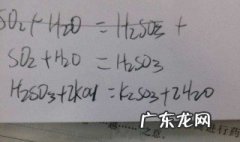 SO2+H2O=H2SO3+
SO2+H2O=H2SO3
H2SO3+2KOH=K2SO3+2H2O
广东龙网